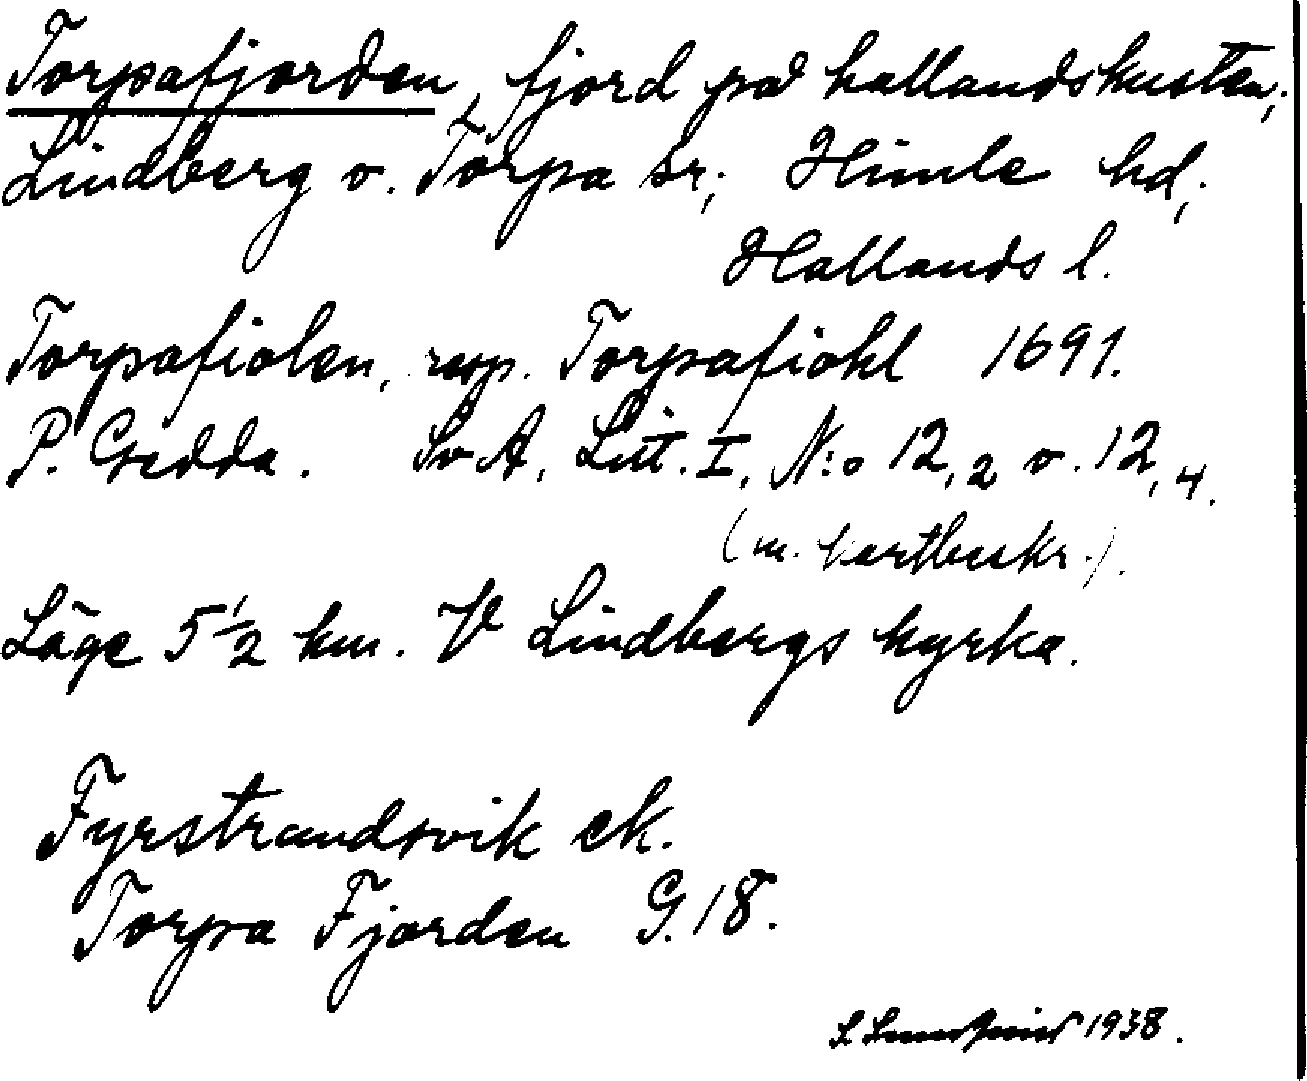 Torpafjorden, fjord på hallandskusten;
Lindberg o. Torpa sr; Himle hd;
Hallands l.
Torpafiolen, resp. Torpafiohl 1691.
P. Gedda. SvA, Litt. I, N:o 12,2 o. 12,4.
(m. kartbeskr.).
Läge 5 1/2 km. V Lindbergs kyrka.
Fyrstrandsvik ek.
Torpa Fjorden G. 18.
1938.